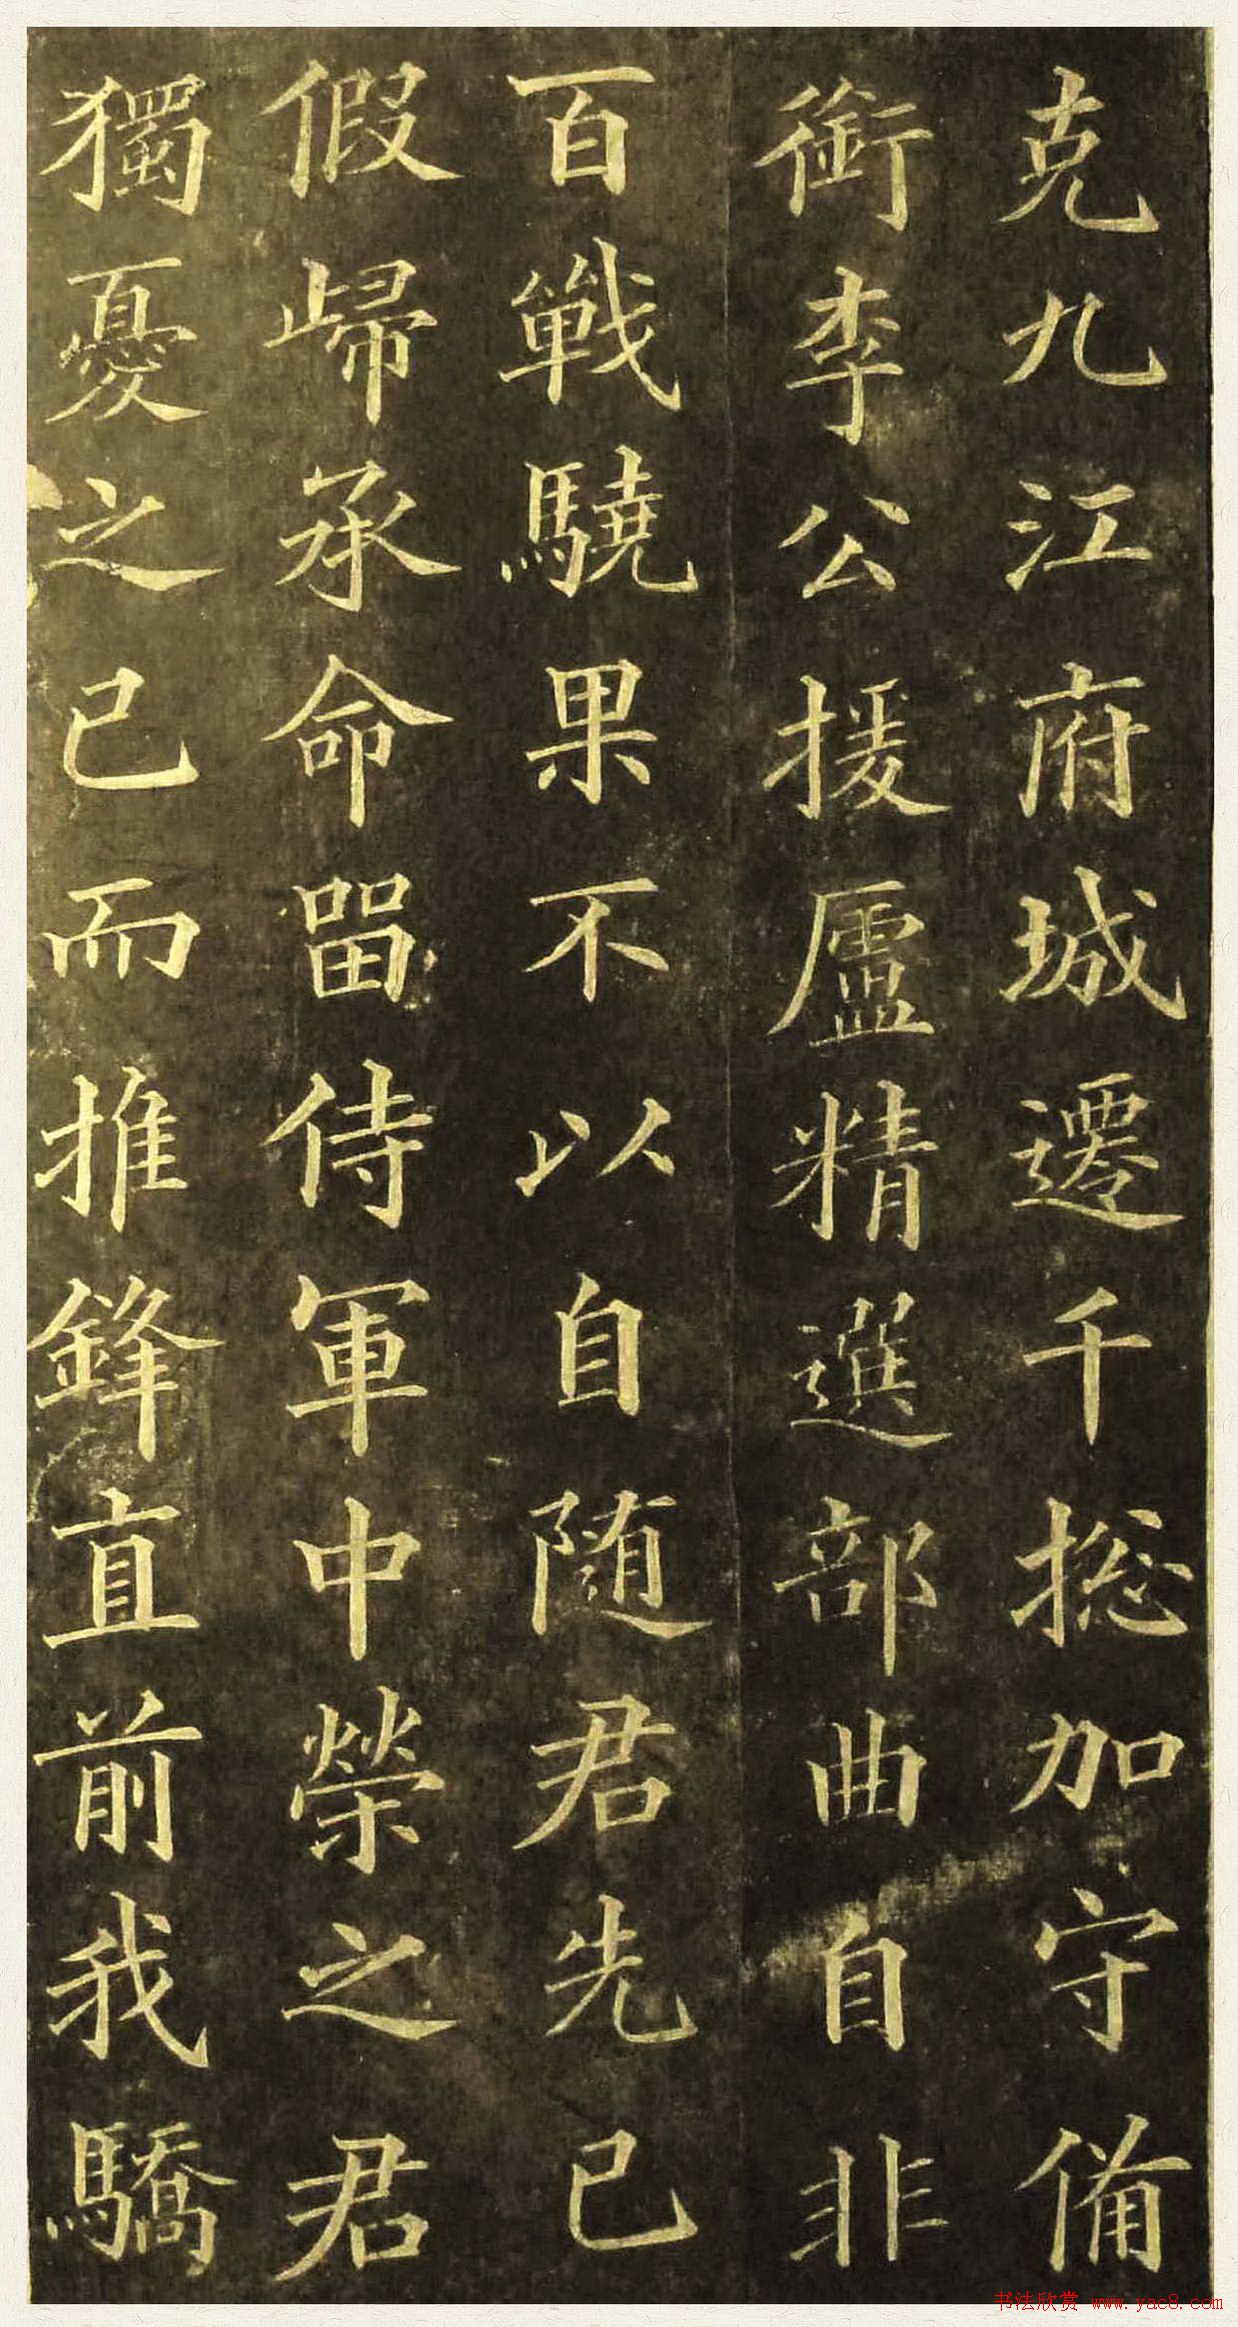 克九江府城遷千摠加守俻
銜李公援廬精選部曲自非
百戰驍果不以自随君先已
假歸承命留侍軍中榮之君
獨憂之已而推鋒直前我驕
书法欣赏 www.yac8.com